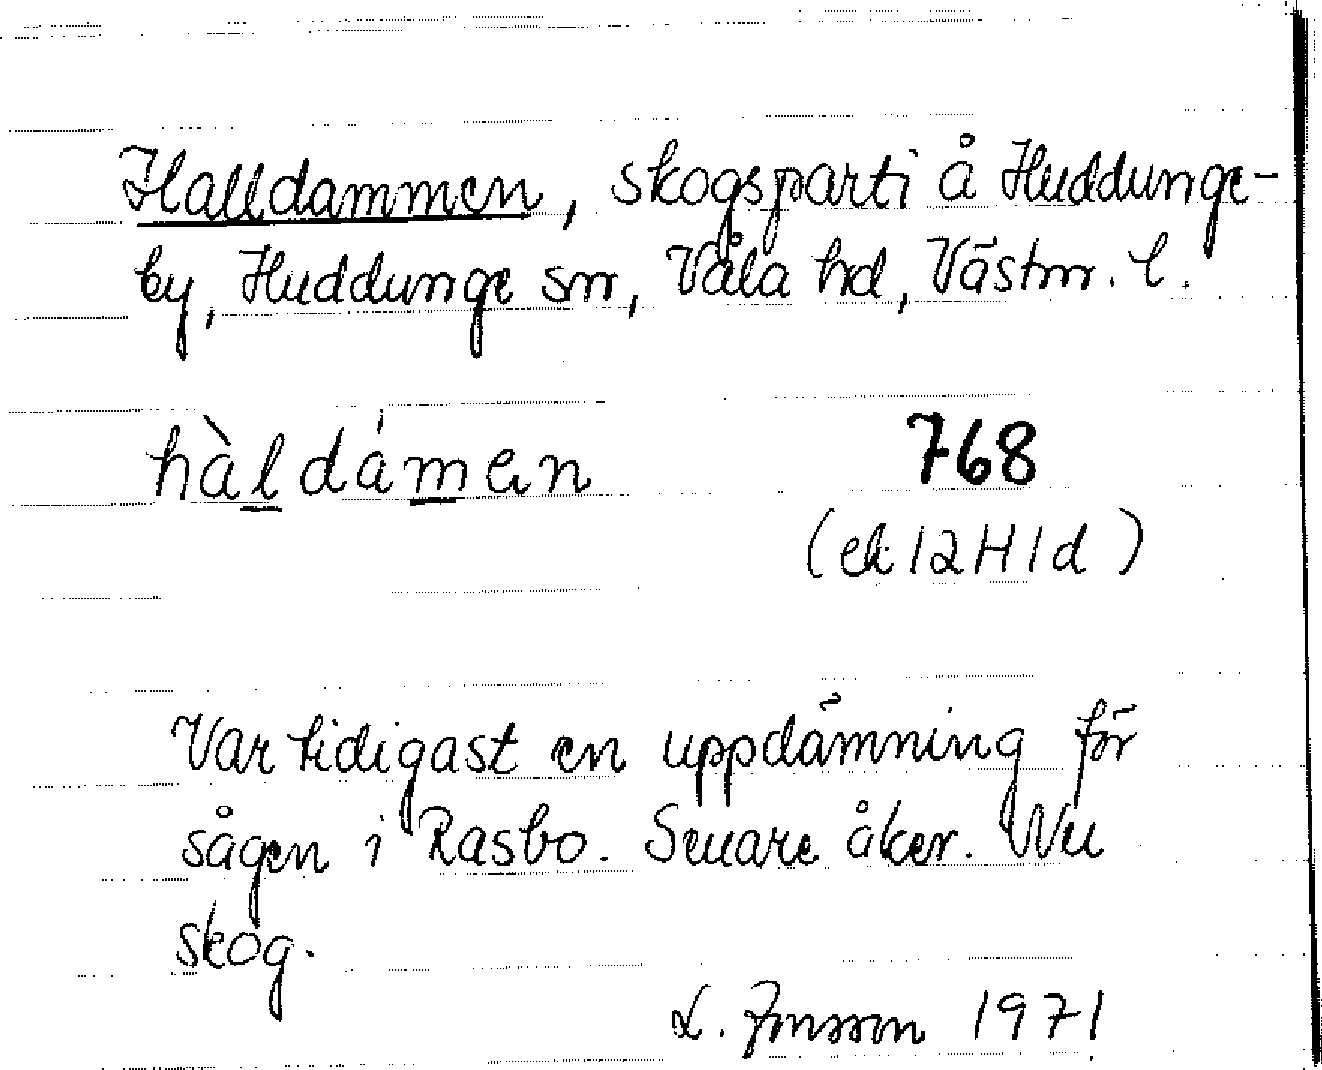 Halldammen, skogsparti å Huddunge-
by, Huddunge sn, Våla hd, Västm. l.
hàldámen 768
(ek 12H1d)
Var tidigast en uppdämning för
sågen i Rasbo. Senare åker. Nu
skog.
L. Jonsson 1971